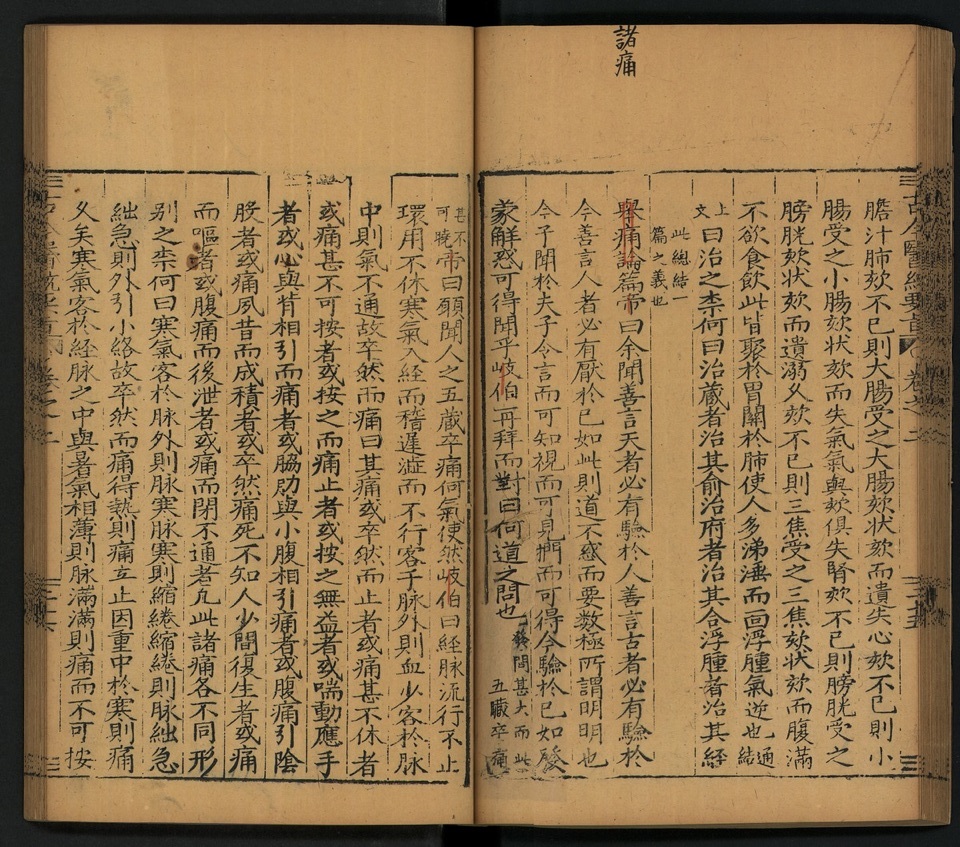 諸痛
膽汁肺欬不已則大腸受之大腸欬狀欬而遺失心欬不已則小
腸受之小腸欬狀欬而失氣氣與欬俱失腎欬不已則膀胱受之
膀胱欬狀欬而遺溺久欬不已則三焦受之三焦欬狀欬而腹滿
不欲食飲此皆聚於胃關於肺使人多涕唾而面浮腫氣逆也通結
上文曰治之柰何曰治藏者治其俞治府者治其合浮腫者治其經
此總結一
篇之義也
舉痛論篇帝曰余聞善言天者必有驗於人善言古者必有驗於
今善言人者必有厭於已如此則道不惑而要數極所謂明明也
今予聞於夫子令言而可知視而可見捫而可得令驗於已如發
蒙解惑可得聞乎岐伯再拜而對曰何道之問也發問甚大而此五臟卒痛
甚不可曉帝曰願聞人之五藏卒痛何氣使然岐伯曰經脈流行不止
環用不休寒氣入經而稽遲澁而不行客于脈外則血少客於脈
中則氣不通故卒然而痛曰其痛或卒然而止者或痛甚不休者
或痛甚不可按者或按之而痛止者或按之無益者或喘動應手
者或心與背相引而痛者或脇肋與小腹相引痛者或腹痛引陰
股者或痛夙昔而成積者或卒然痛死不知人少間復生者或痛
而嘔者或腹痛而後泄者或痛而閉不通者凢此諸痛各不同形
別之柰何曰寒氣客於脈外則脈寒脈寒則縮綣縮綣則脈絀急
絀急則外引小絡故卒然而痛得熱則痛立止因重中於寒則痛
乆矣寒氣客於經脈之中與暑氣相薄則脈滿滿則痛而不可按